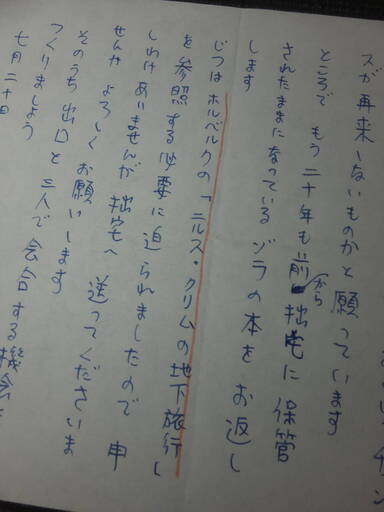 スが再来しないものかと願っています
ところで もう二十年も前から拙宅に保管
されたままになっている ゾラの本を お返し
します
じつは ホルベルクの「ニルス・クリムの地下旅行」
を 参照する必要に迫られましたので 申
しわけありませんが 拙宅へ 送ってくださいま
せんか よろしく お願いします
そのうち 出口と 三人で 会合する機会を
つくりましょう
七月二十日